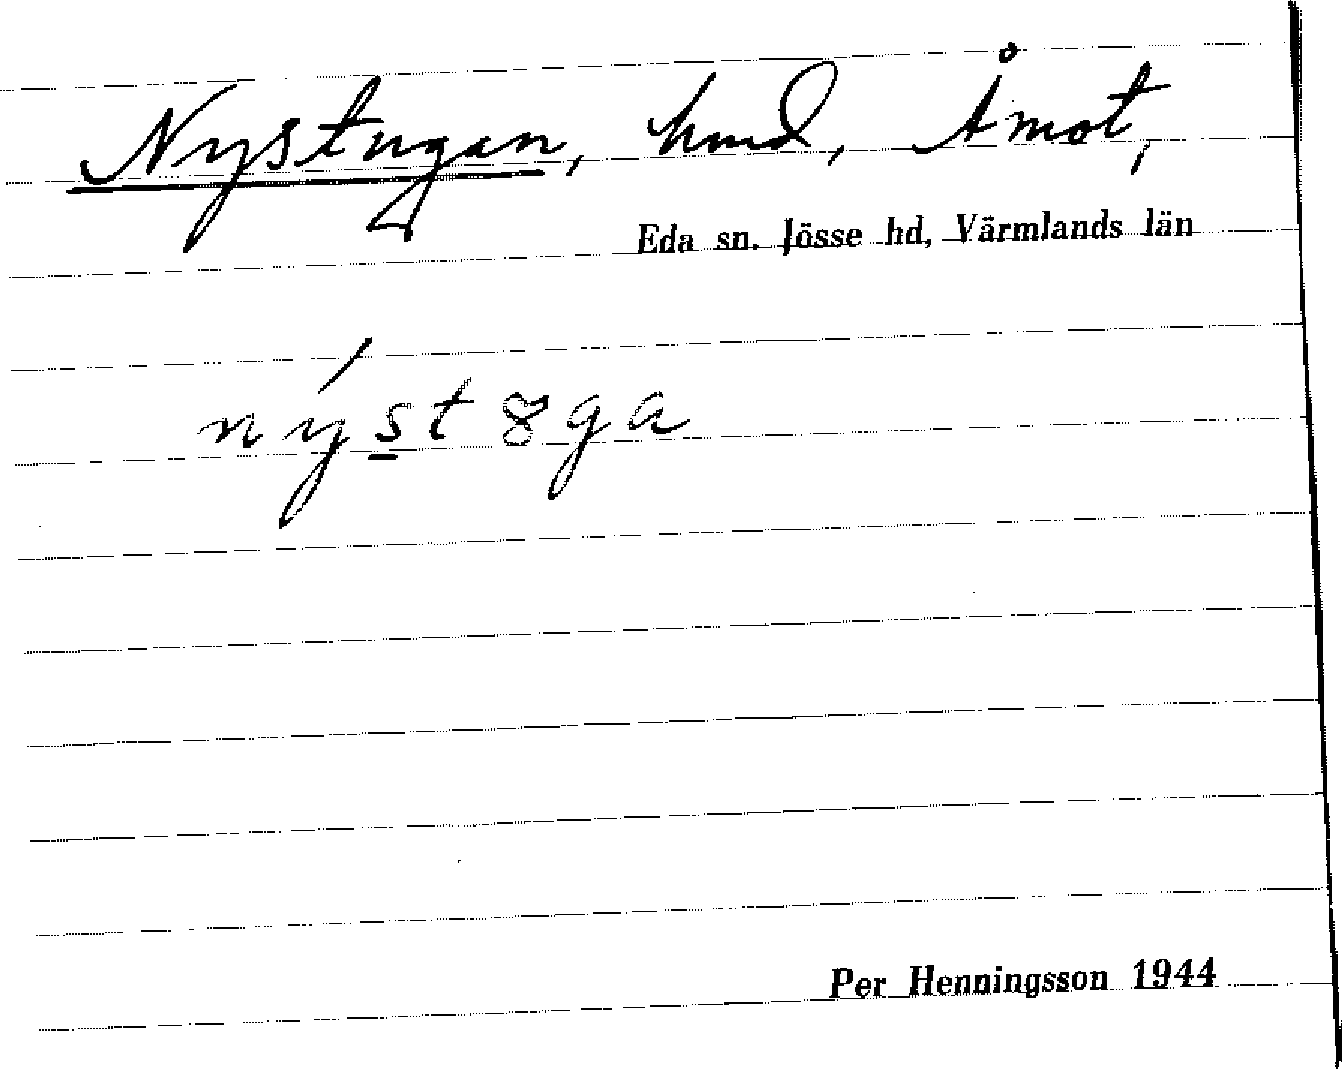 Nystugan, hmd, Åmot,
Eda sn. Jösse hd, Värmlands län
nýst8ga
Per Henningsson 1944